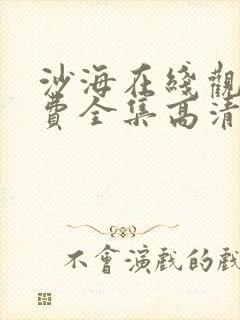 沙海在綫觀
費全集高清
不會演戲的戲